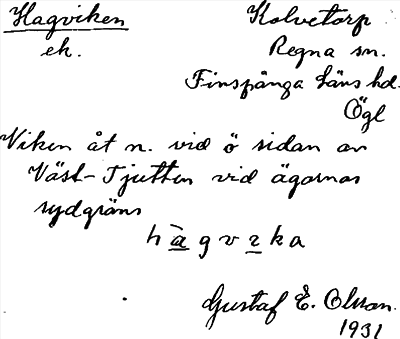 Hagviken Kolvetorp
ek. Regna sn.
Finspånga läns hd.
Ögl
Viken åt n. vid ö sidan av
Väst-Tjutten vid ägornas
sydgräns
hàgvıka
Gustaf E. Olsson.
1931